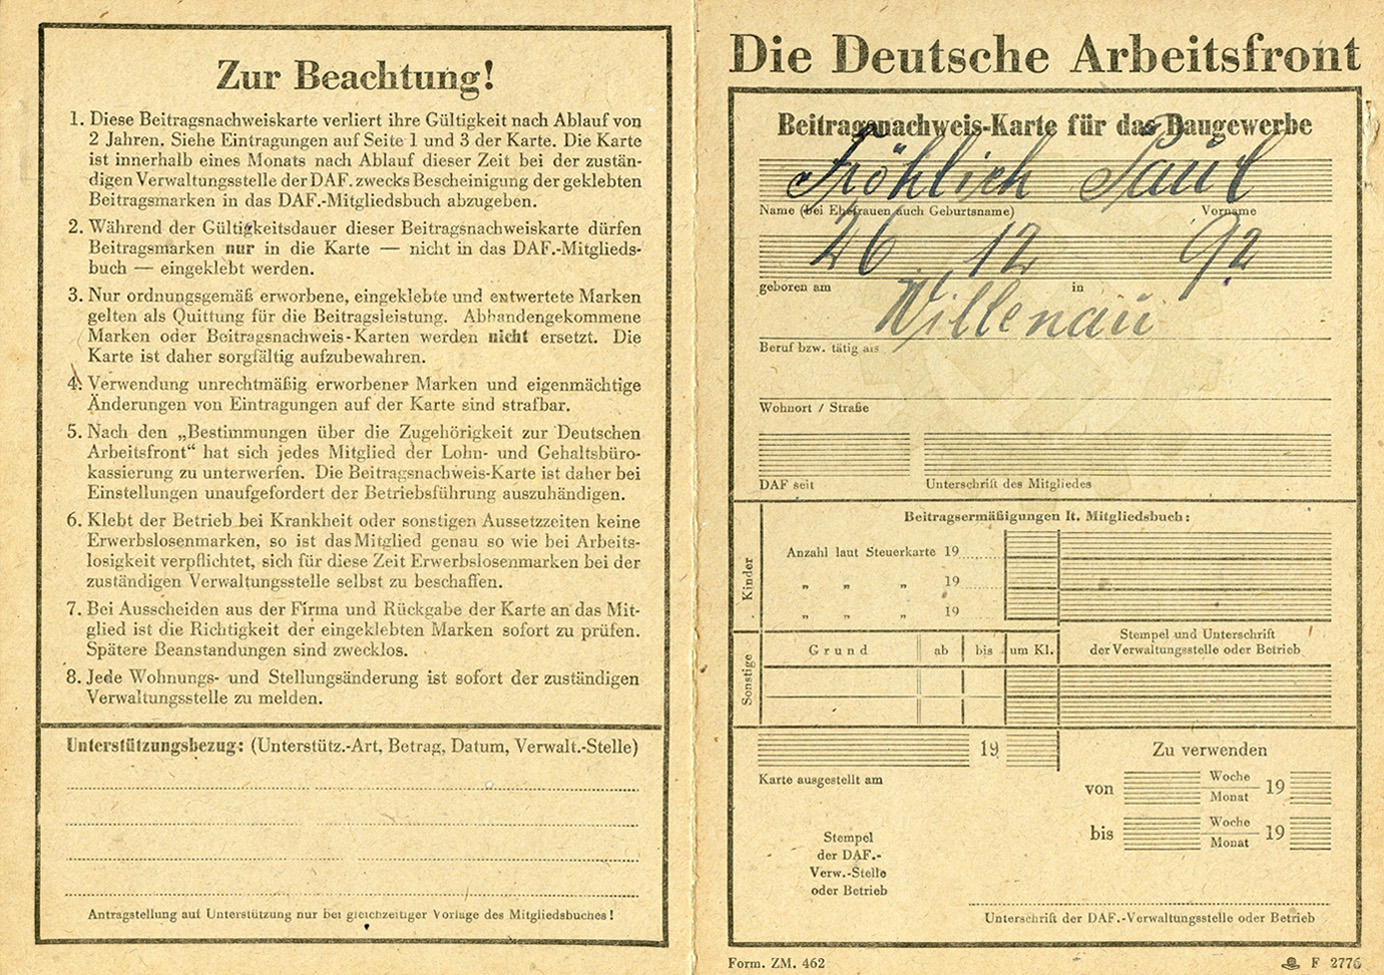 Zur Beachtung!
1. Diese Beitragsnachweiskarte verliert ihre Gültigkeit nach Ablauf von
2 Jahren. Siehe Eintragungen auf Seite 1 und 3 der Karte. Die Karte
ist innerhalb eines Monats nach Ablauf dieser Zeit bei der zustän-
digen Verwaltungsstelle der DAF. zwecks Bescheinigung der geklebten
Beitragsmarken in das DAF.-Mitgliedsbuch abzugeben.
2. Während der Gültigkeitsdauer dieser Beitragsnachweiskarte dürfen
Beitragsmarken nur in die Karte — nicht in das DAF.-Mitglieds-
buch — eingeklebt werden.
3. Nur ordnungsgemäß erworbene, eingeklebte und entwertete Marken
gelten als Quittung für die Beitragsleistung. Abhandengekommene
Marken oder Beitragsnachweis-Karten werden nicht ersetzt. Die
Karte ist daher sorgfältig aufzubewahren.
4. Verwendung unrechtmäßig erworbener Marken und eigenmächtige
Änderungen von Eintragungen auf der Karte sind strafbar.
5. Nach den „Bestimmungen über die Zugehörigkeit zur Deutschen
Arbeitsfront“ hat sich jedes Mitglied der Lohn- und Gehaltsbüro-
kassierung zu unterwerfen. Die Beitragsnachweis-Karte ist daher bei
Einstellungen unaufgefordert der Betriebsführung auszuhändigen.
6. Klebt der Betrieb bei Krankheit oder sonstigen Aussetzzeiten keine
Erwerbslosenmarken, so ist das Mitglied genau so wie bei Arbeits-
losigkeit verpflichtet, sich für diese Zeit Erwerbslosenmarken bei der
zuständigen Verwaltungsstelle selbst zu beschaffen.
7. Bei Ausscheiden aus der Firma und Rückgabe der Karte an das Mit-
glied ist die Richtigkeit der eingeklebten Marken sofort zu prüfen.
Spätere Beanstandungen sind zwecklos.
8. Jede Wohnungs- und Stellungsänderung ist sofort der zuständigen
Verwaltungsstelle zu melden.
Unterstützungsbezug: (Unterstütz.-Art, Betrag, Datum, Verwalt.-Stelle)
Antragstellung auf Unterstützung nur bei gleichzeitiger Vorlage des Mitgliedsbuches!
Die Deutsche Arbeitsfront
Beitragsnachweis-Karte für das Baugewerbe
Fröhlich Paul
Name (bei Ehefrauen auch Geburtsname) Vorname
26 12 92
geboren am in
Willenau
Beruf bzw. tätig als
Wohnort / Straße
DAF seit Unterschrift des Mitgliedes
Beitragsermäßigungen lt. Mitgliedsbuch:
Kinder
Anzahl laut Steuerkarte 19
„ „ „ 19
„ „ „ 19
Sonstige
Grund ab bis um Kl.
Stempel und Unterschrift
der Verwaltungsstelle oder Betrieb
19
Karte ausgestellt am
Zu verwenden
von Woche Monat 19
bis Woche Monat 19
Stempel
der DAF.-
Verw.-Stelle
oder Betrieb
Unterschrift der DAF.-Verwaltungsstelle oder Betrieb
Form. ZM. 462
F 2776